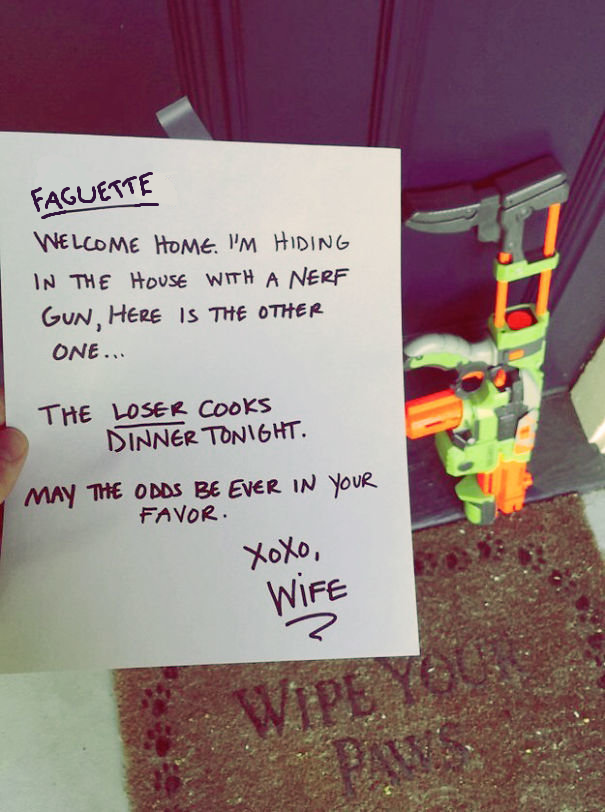 FAGUETTE
WELCOME HOME. I'M HIDING
IN THE HOUSE WITH A NERF
GUN, HERE IS THE OTHER
ONE...
THE LOSER COOKS
DINNER TONIGHT.
MAY THE ODDS BE EVER IN YOUR
FAVOR.
XOXO,
WIFE
WIPE YOUR
PAWS